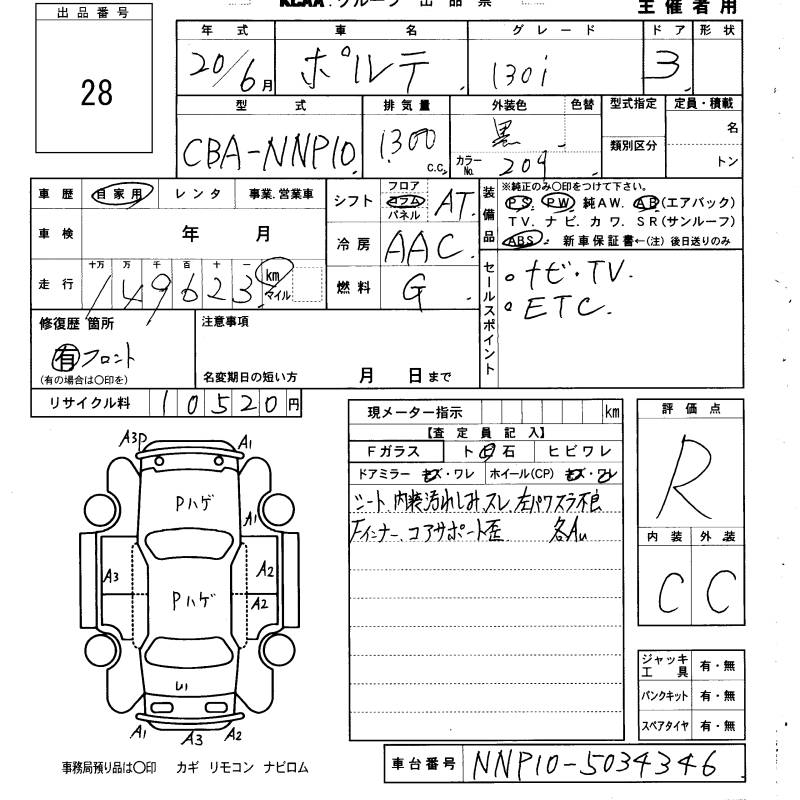 KCAA.グループ 出品票
主催者用
出品番号
28
年式 車名 グレード ドア 形状
20/6月 ポルテ 130i 3
型式 排気量 外装色 色替 型式指定 定員・積載
CBA-NNP10 1300 C.C. 黒 カラーNo. 209 類別区分 名
トン
車歴 自家用 レンタ 事業.営業車
シフト フロア コラム パネル AT
装備品 ※純正のみ○印をつけて下さい。
PS. PW 純AW. AB(エアバック)
TV. ナビ. カワ. SR(サンルーフ)
ABS. 新車保証書←(注) 後日送りのみ
車検 年 月
冷房 AAC
走行 十万 万 千 百 十 一
149623 km マイル
燃料 G
セールスポイント
・ナビ・TV.
・ETC.
修復歴 箇所
有 フロント
(有の場合は○印を)
注意事項
名変期日の短い方 月 日まで
リサイクル料 10520円
現メーター指示 km
【査定員記入】
Fガラス ト 石 ヒビワレ
ドアミラー キズ・ワレ ホイール(CP) キズ・ワレ
シート、内装汚れしみ、スレ、左パワスラ不良
Fインナー、コアサポート歪 各Au
評価点
R
内装 外装
C C
A3P A1
Pハゲ
A1
A3 A2
Pハゲ A2
U1
A1 A3 A2
ジャッキ工具 有・無
パンクキット 有・無
スペアタイヤ 有・無
事務局預り品は○印 カギ リモコン ナビロム
車台番号 NNP10-5034346